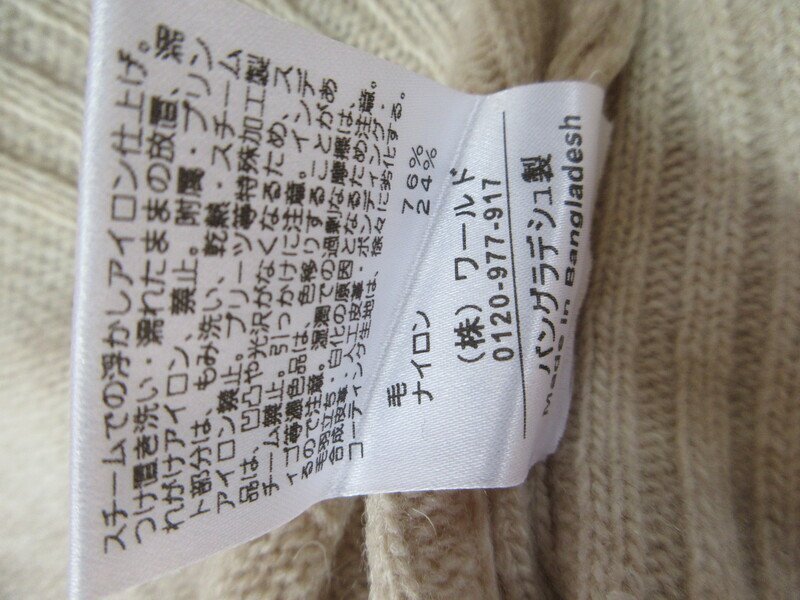 スチームでの浮かしアイロン仕上げ。
つけ置き洗い・濡れたままの放置、深
れがけアイロン、禁止。附属・プリン
ト部分は、もみ洗い、乾熱・スチーム
アイロン禁止。プリーツ等特殊加工製
品は、凹凸や光沢がなくなるため、ス
チーム禁止。引っかけに注意。インデ
ィゴ等濃色品は、色移りすることがあ
るので注意。湿潤での過剰な摩擦は、
毛羽立ち・白化の原因となるため注意。
合成皮革・人工皮革・ボンディング・
コーティング生地は、徐々に劣化する。
毛 76%
ナイロン 24%
(株) ワールド
0120-977-917
バングラデシュ製
Made in Bangladesh